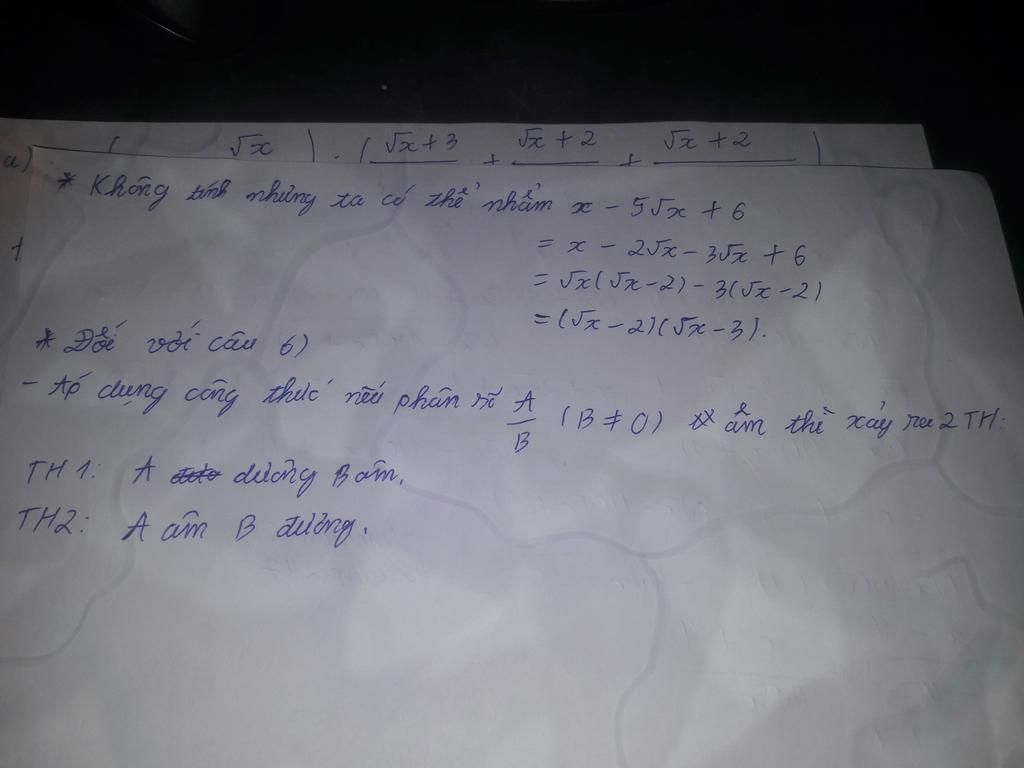 a) ( √x ) . ( √x + 3 + √x + 2 + √x + 2 )
* Không tính nhưng ta có thể nhẩm x - 5√x + 6
= x - 2√x - 3√x + 6
= √x(√x - 2) - 3(√x - 2)
= (√x - 2)(√x - 3).
* Đối với câu b)
- Áp dụng công thức nếu phân số A/B (B ≠ 0) âm thì xảy ra 2 TH:
TH1: A dương B âm.
TH2: A âm B dương.